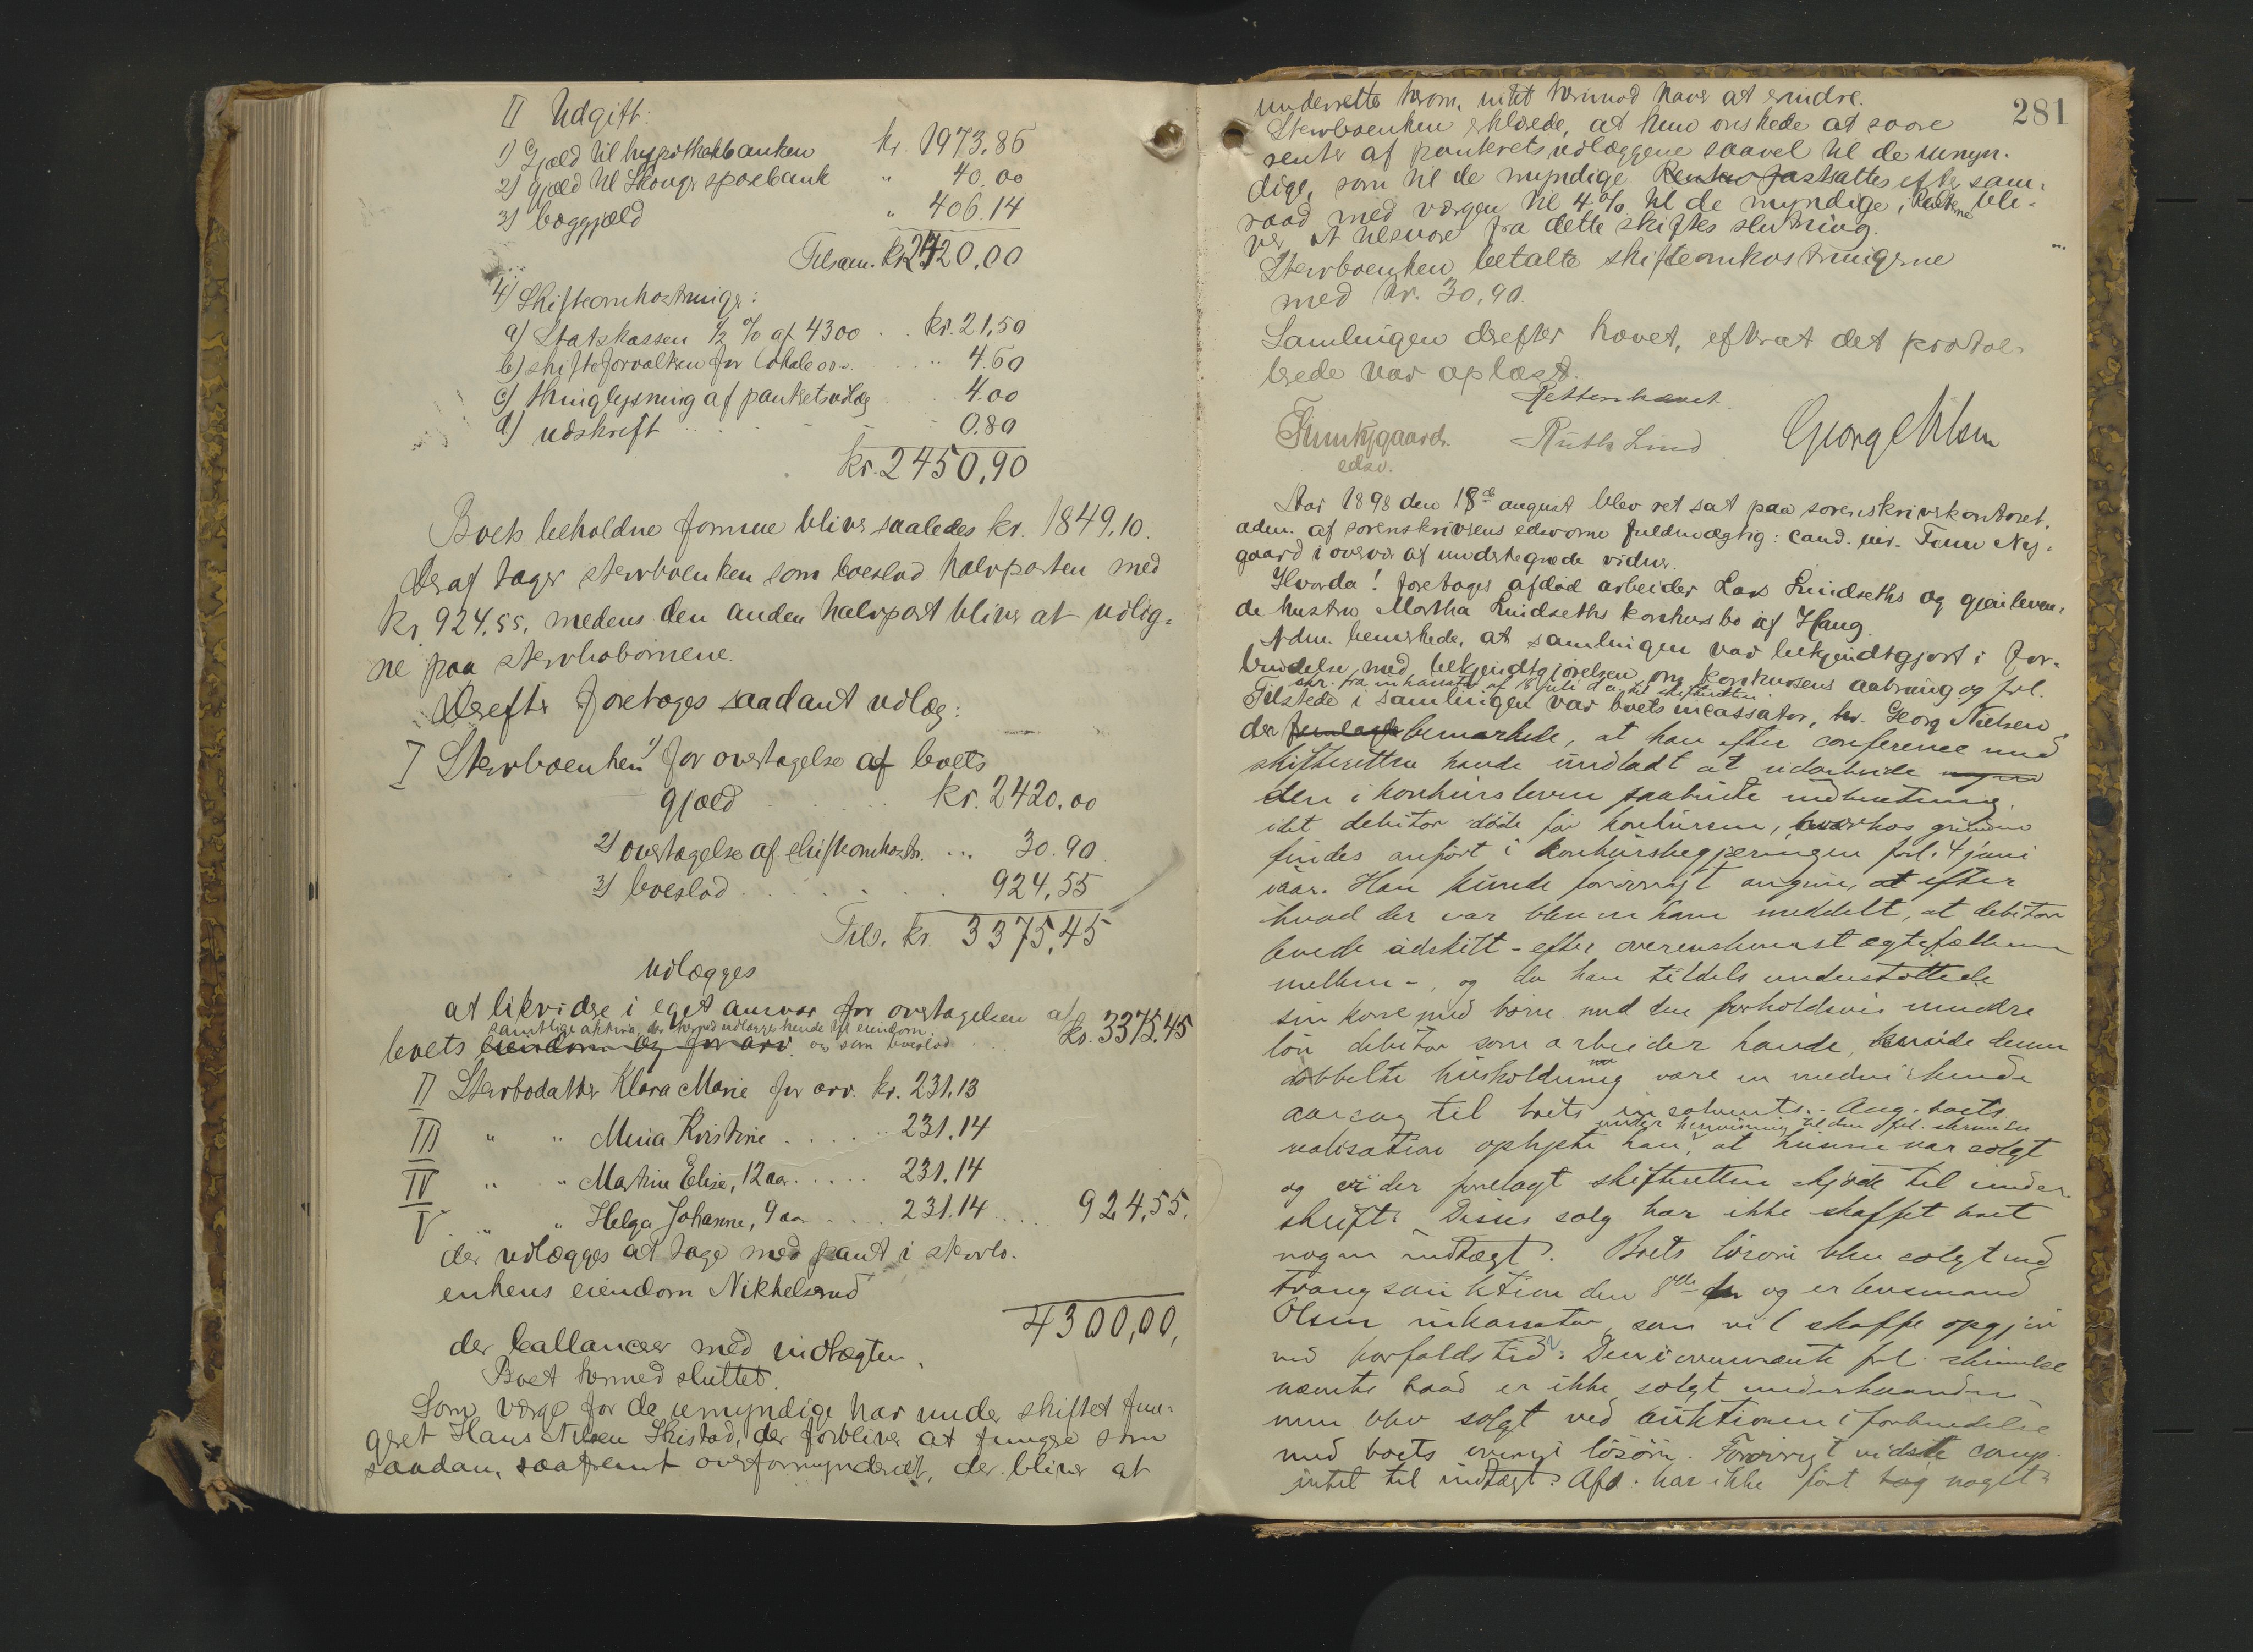 II Udgift:
1) Gjæld til hypothekbanken kr. 1973.86
2) gjæld til Skouger sparebank " 40.00
3) boggjæld " 406.14
Tilsam. kr. 2420.00
4) Skifteomkostninger:
a) Statskassen ½ % af 4300 . . kr. 21,50
b) skifteforvalteren for lokale o.s.v. . . 4.60
c) thinglysning af panteretsudlæg . . 4.00
d) udskrift . . . - - - 0.80
kr. 2450,90
Boets beholdne formue bliver saaledes kr. 1849,10.
Deraf tager stervboenken som boeslod halvparten med
kr. 924.55, medens den anden halvpart bliver at udlig-
ne paa stervbobørnene.
Derefter foretoges saadant udlæg:
I Stervboenken 1) for overtagelse af boets
gjæld . . . kr. 2420.00
2) overtagelse af skifteomkostn. ... 30.90
3) boeslod . . . . . 924,55
Tils. kr. 3375,45
udlægges
at likvidere i eget ansvar for overtagelsen af
samtlige aktiva, der herved udlægges hende til eiendom
boets eiendom og for arv. og som boeslod . . . kr. 3375.45
II Stervbodatter Klara Marie for arv. kr. 231.13
III " " Mina Kristine . . . . . 231.14
IV " " Martine Elise, 12 aar . . . . . 231.14
V " " Helga Johanne, 9 aar . . . . 231.14 . . . . 924,55.
der udlægges at tage med pant i stervbo-
enkens eiendom Nikkelsrud
4300,00,
der ballancerer med indtægten.
Boet hermed sluttet.
Som værge for de umyndige har under skiftet fun-
geret Hans Nilsen Skistad, der forbliver at fungere som
saadan, saafremt overformynderiet, der bliver at
281
underrette herom, intet herimod haver at erindre.
Stervboenken erklærede, at hun ønskede at svare
renter af panteretsudlæggene saavel til de umyn-
dige, som til de myndige. Renten fastsattes efter sam-
raad med værgen til 4% til de myndige, Renterne bli-
ver at tilsvare fra dette skiftes slutning.
Stervboenken betalte skifteomkostningerne
med kr. 30,90.
Samlingen derefter hævet, efterat det protokol-
lerede var oplæst.
Retten hævet.
Finn Nygaard Ruth Lind Georg Nilsen
edsv.
Aar 1898 den 18de august blev ret sat paa sorenskriverkontoret,
adm. af sorenskriverens edsvorne fuldmægtig: cand. jur. Finn Ny-
gaard i overvær af undertegnede vidner.
Hvorda! foretoges afdød arbeider Lars Lindseths og gjenleven-
de hustru Martha Lindseths konkursbo af Haug.
Adm. bemerkede, at samlingen var bekjendtgjort i for-
bindelse med bekjendtgjørelsen om konkursens aabning og frl.
skr. fra inkassator af 18 juli d. a. til skifteretten.
Tilstede i samlingen var boets incassator, hr. Georg Nielsen
der bemærkede, at han efter conference med
skifteretten havde undladt at udarbeide
den i konkursloven paabudte indberetning,
idet debitor døde før konkursen, hvorhos grunden
findes anført i konkursbegjæringen frl. 4 juni
iaar. Han kunde forøvrigt angive, at efter
hvad der var bleven ham meddelt, at debitor
levede adskilt - efter overenskomst ægtefællerne
mellem -, og da han tildels understøttede
sin kone med børn med den forholdsvis mindre
løn debitor som arbeider havde, havde denne
dobbelte husholdning være en medvirkende
aarsag til boets insolvents. - Ang. boets
under henvisning til den frl. skrivelse
realisation oplyste han, at husene var solgt
og vi der forelagt skifteretten skjøde til under-
skrift. Disses salg har ikke skaffet boet
nogen indtægt. Boets løsøre blev solgt ved
tvangsauktion den 8de ds og er lensmand
Olsen inkassator, som vil skaffe opgjør
ved forfaldstid. Den i ovennævnte frl. skrivelse
nævnte baad er ikke solgt underhaanden
men blev solgt ved auktionen i forbindelse
med boets øvrige løsøre. Forøvrigt vidste comp.
intet til indtægt. Afd. har ikke ført bog noget